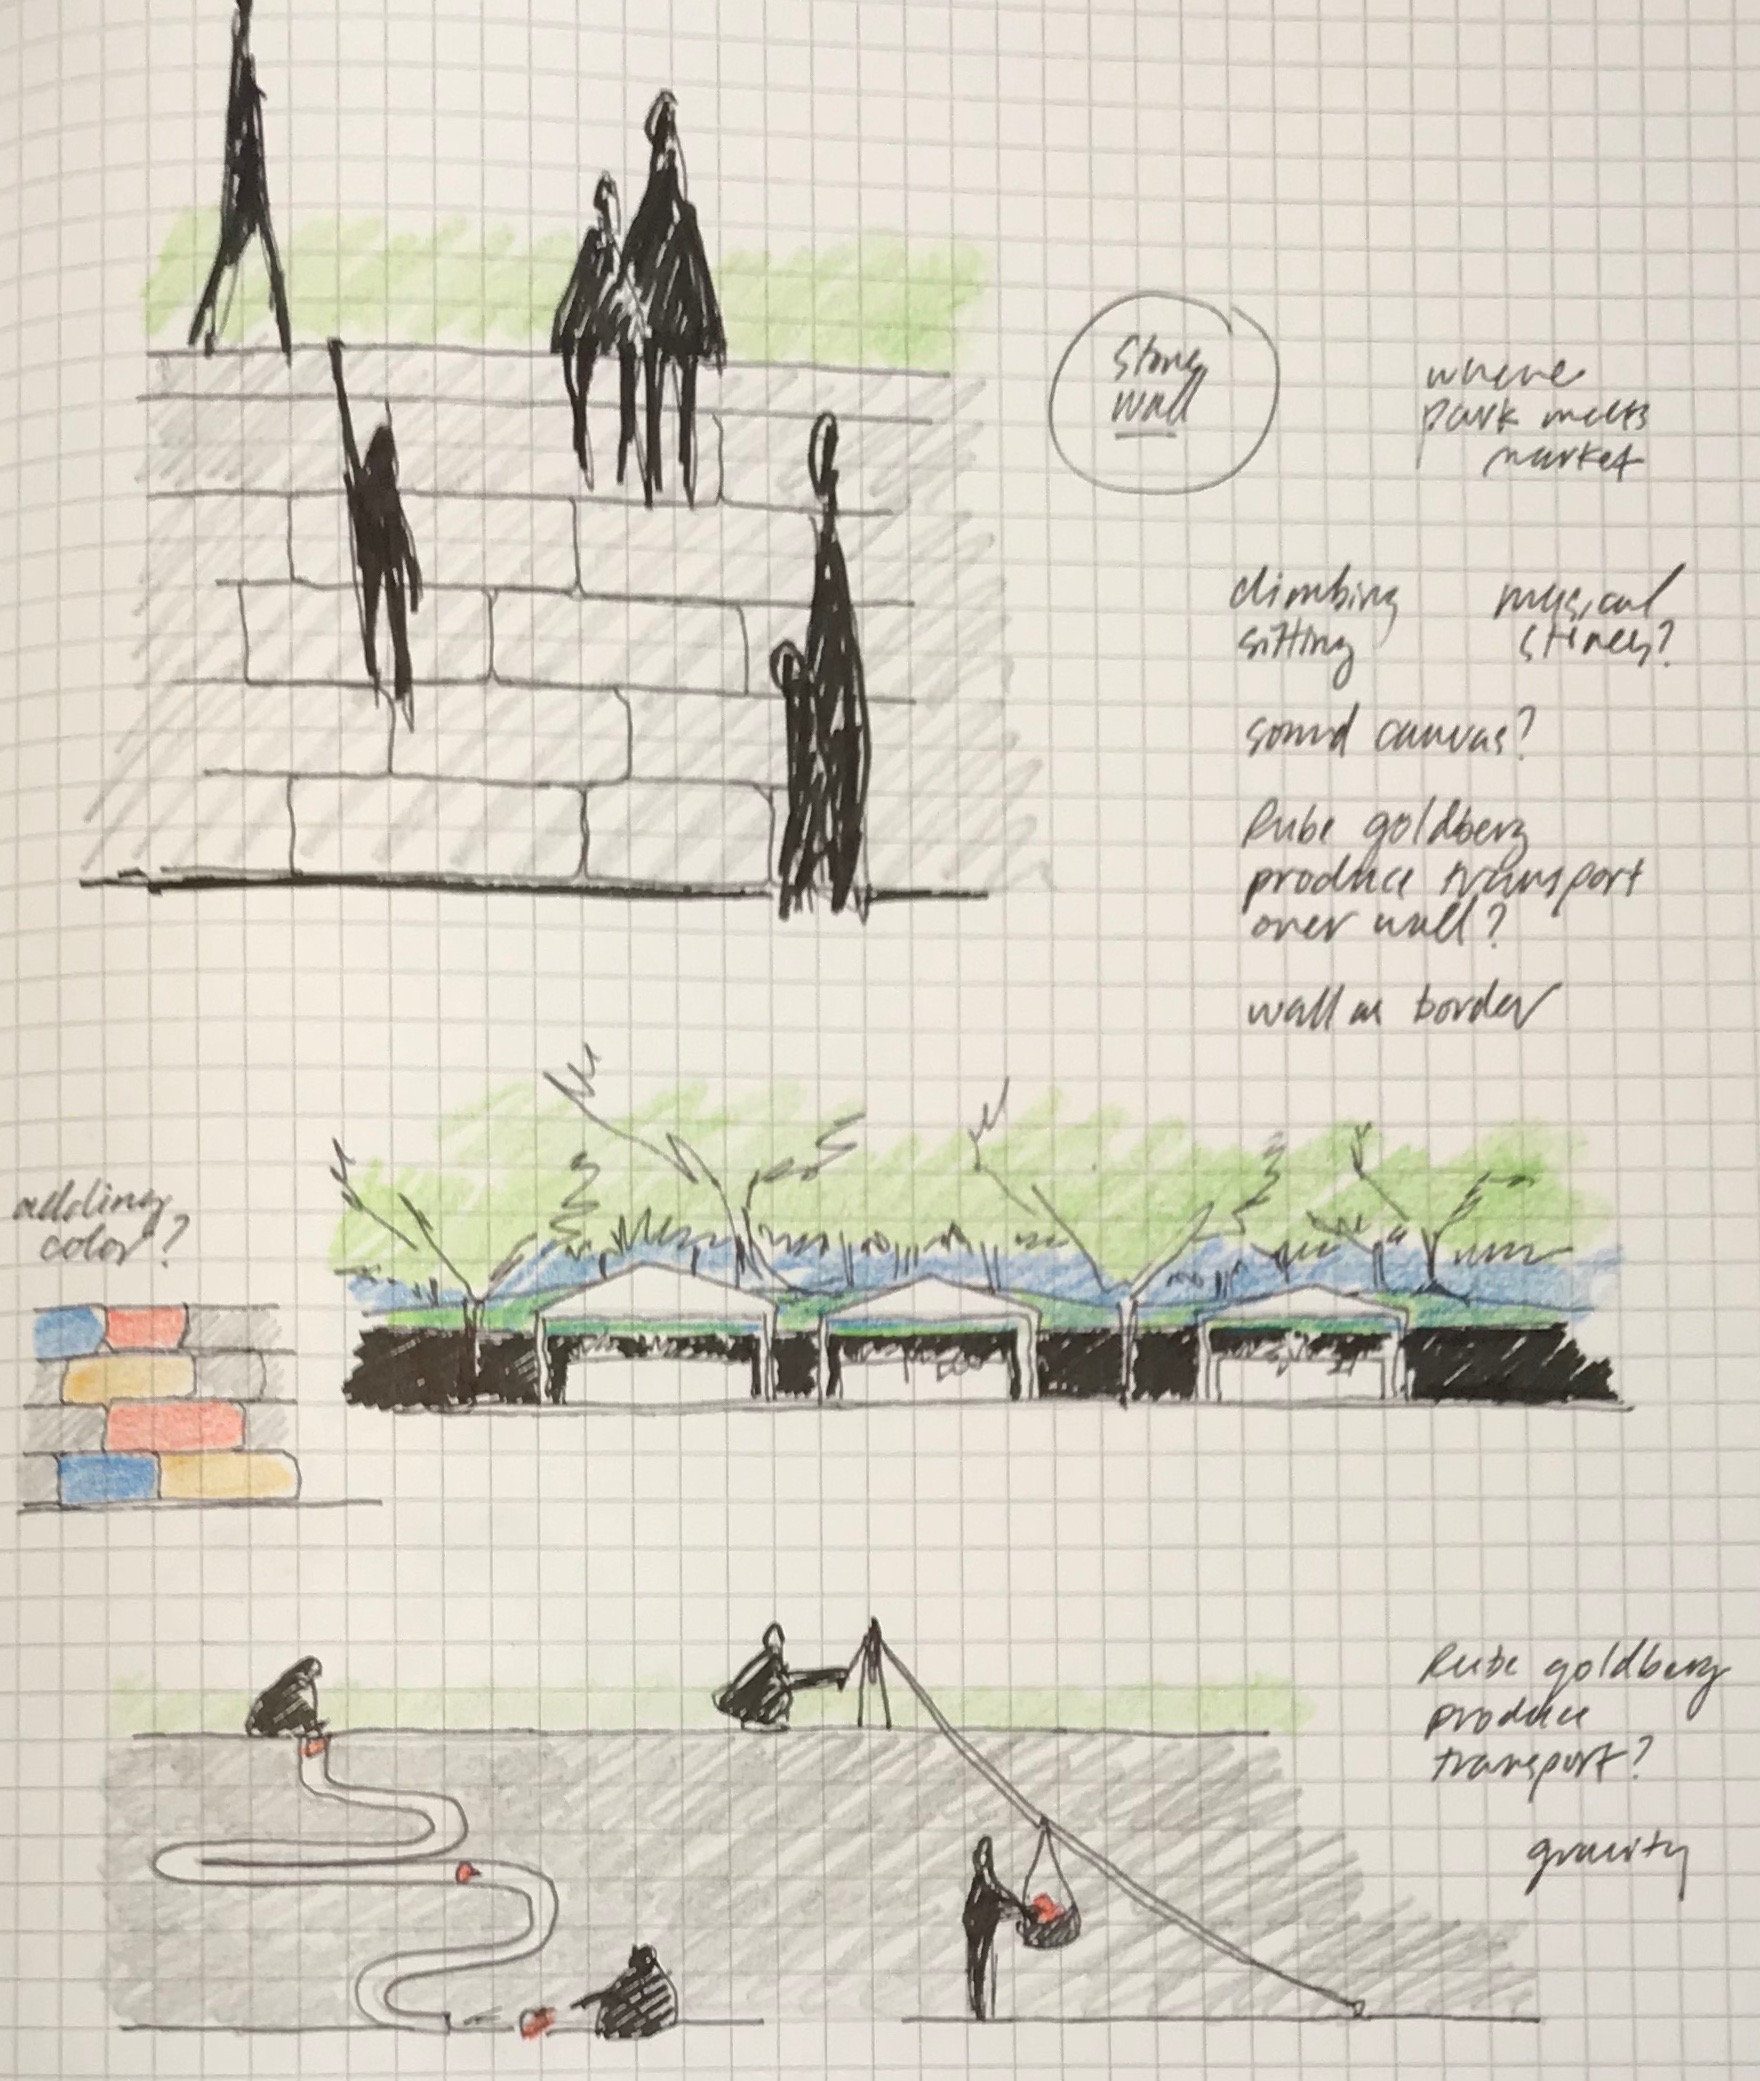 Stone
wall
where
park meets
market
climbing
sitting
musical
stones?
sound canvas?
Rube goldberg
produce transport
over wall?
wall as border
adding
color?
Rube goldberg
produce
transport?
gravity